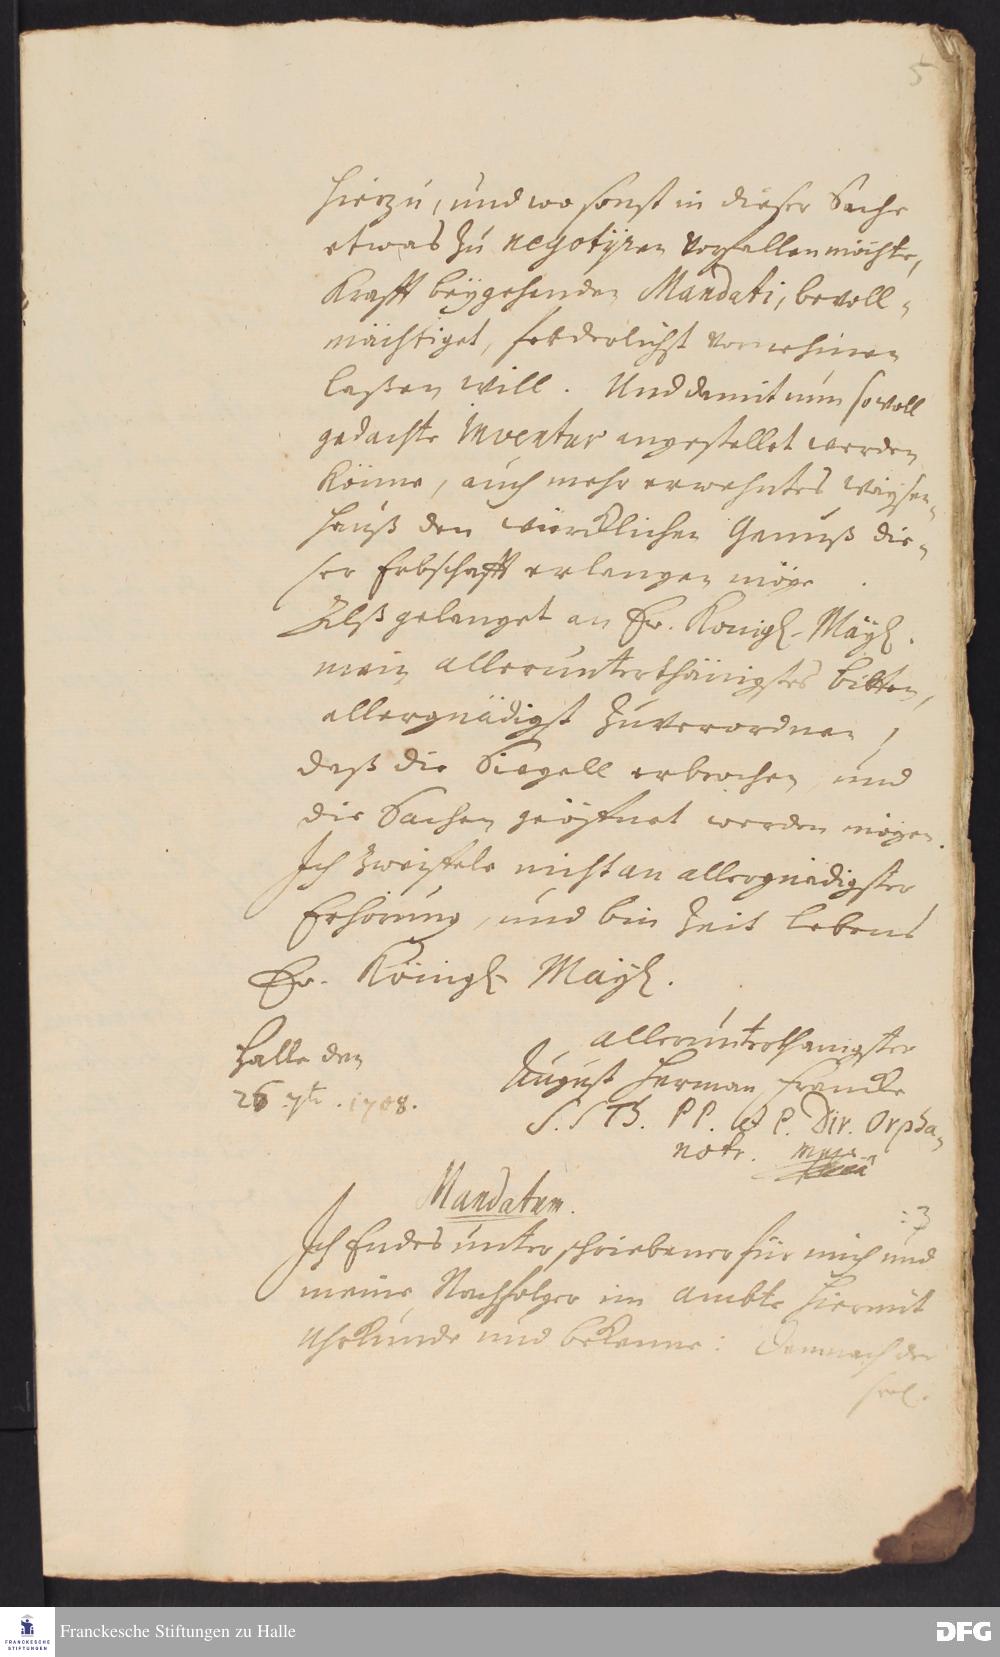 5
hierzu, und wo sonst in dieser Sache
etwas zu negotyren vorfallen möchte,
Krafft beÿgehenden Mandati, bevoll-
mächtiget, forderlichst vornehmen
laßen will. Und damit nun sowoll
gedachte Inventur angestellet werden
könne, auch mehr erwehntes Waÿsen-
hauß den würcklichen Genuß die-
ser Erbschafft erlangen möge.
Alß gelanget an Ew. Königl. Maÿt.
mein allerunterthänigstes bitten,
allergnädigst zuverordnen,
daß die Siegell erbrochen, und
die Sachen geöffnet werden mögen.
Ich zweifele nicht an allergnädigster
Erhörung, und bin Zeit Lebens
Ew. Königl. Maÿt.
allerunterthänigster
Halle den
August Herman Francke
26 7br. 1708.
S. S Th. P P. et P. Dir. Orpha-
notr.
Mandatum.
Ich Endes unterschriebener für mich und
meine Nachfolger im Ambte hiermit
Uhrkunde und bekenne: Demnach der
seel.
Franckesche Stiftungen zu Halle
FRANCKESCHE
STIFTUNGEN
DFG